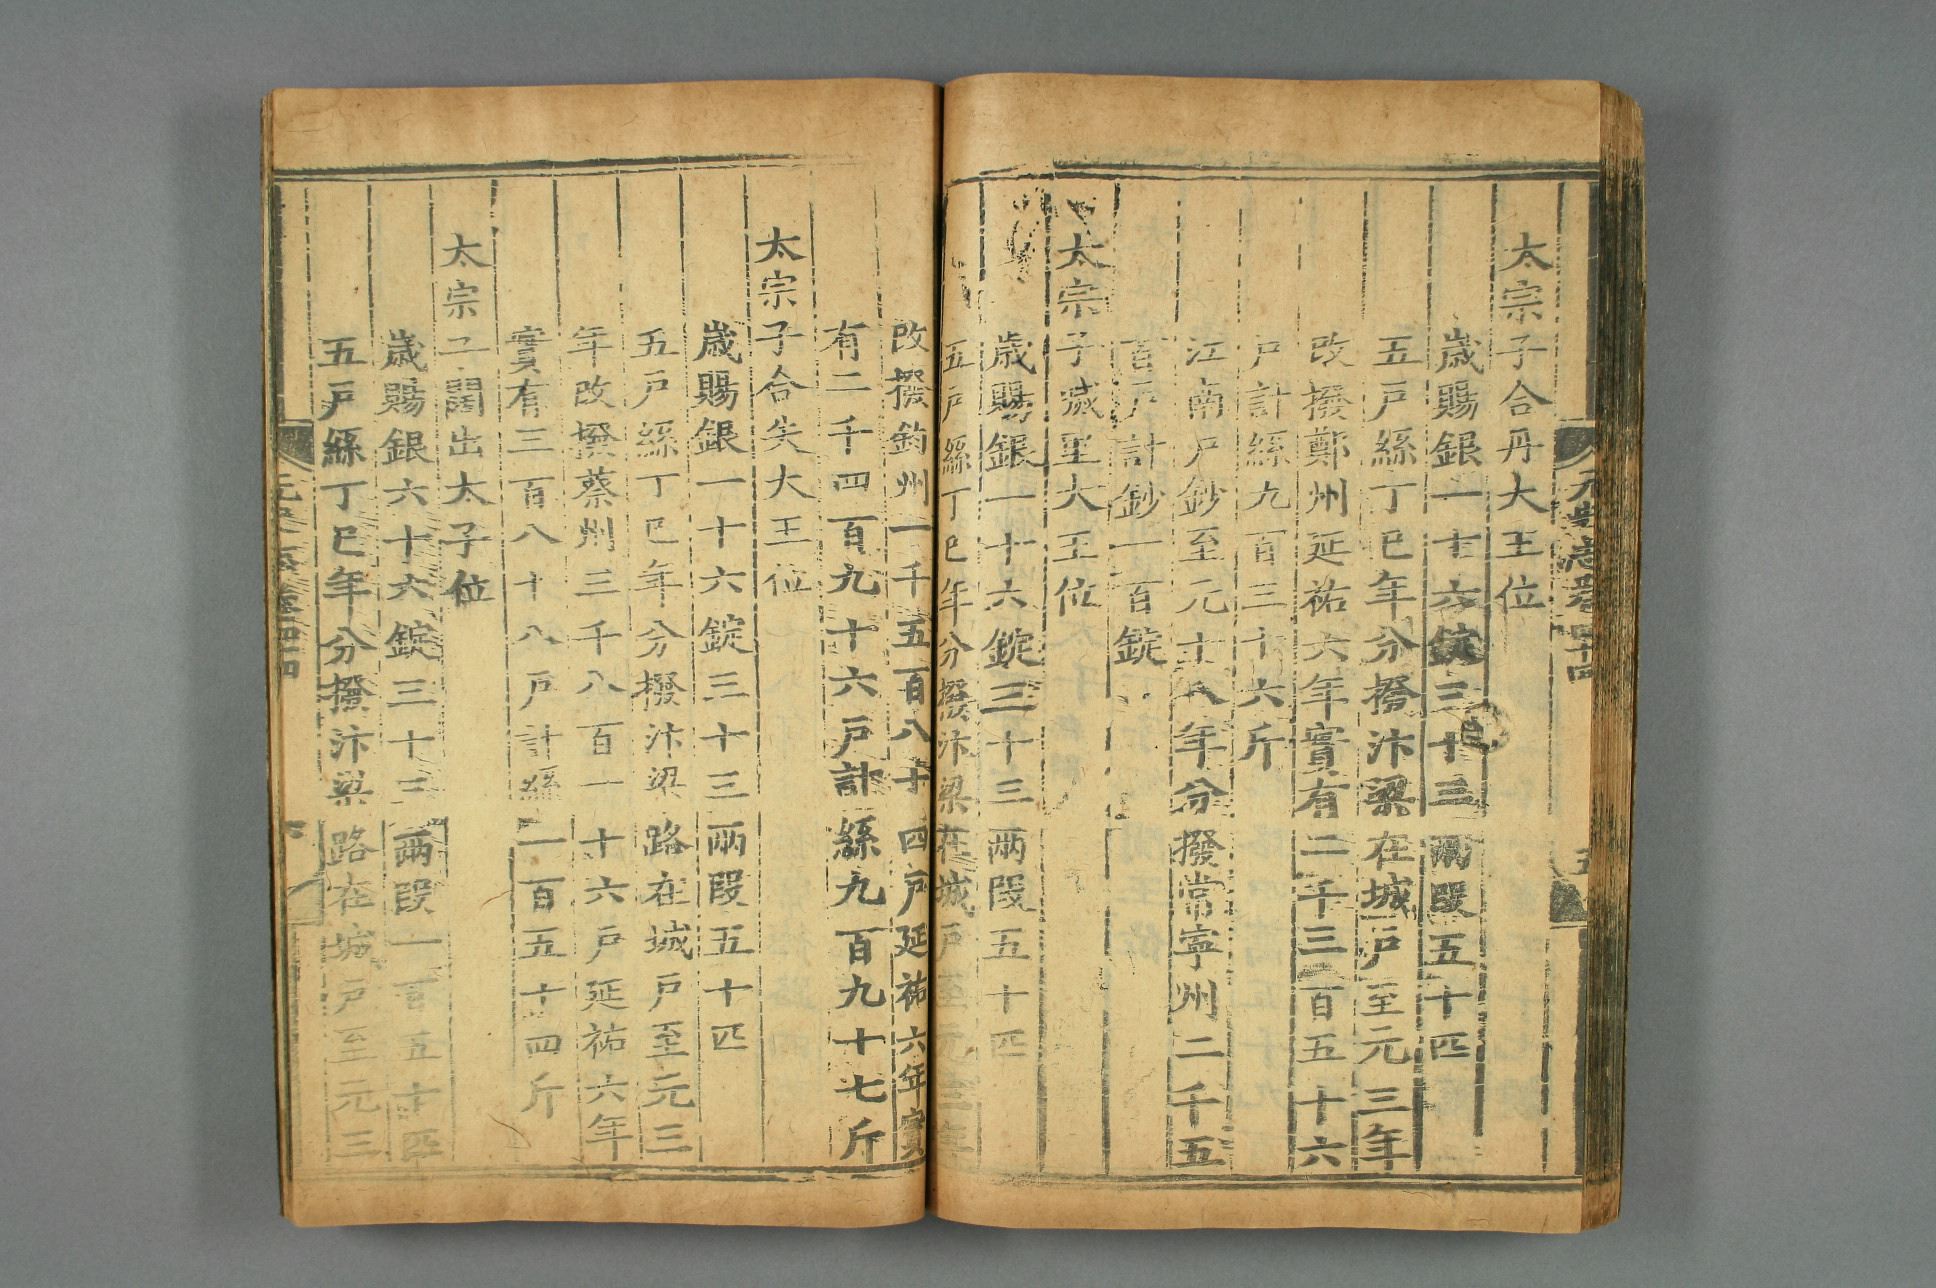 太宗子合丹大王位
歳賜銀一十六錠三十三兩段五十匹
五戸絲丁巳年分撥汴梁在城戸至元三年
改撥鄭州延祐六年實有二千三百五十六
戸計絲九百三十六斤
江南戸鈔至元十八年分撥常寧州二千五
百戸計鈔一百錠
太宗子滅里大王位
歳賜銀一十六錠三十三兩段五十匹
五戸絲丁巳年分撥汴梁在城戸至元三年
改撥鈞州一千五百八十四戸延祐六年實
有二千四百九十六戸計絲九百九十七斤
太宗子合失大王位
歳賜銀一十六錠三十三兩段五十匹
五戸絲丁巳年分撥汴梁路在城戸至元三
年改撥蔡州三千八百一十六戸延祐六年
實有三百八十八戸計絲一百五十四斤
太宗子闊出太子位
歳賜銀六十六錠三十三兩段一百五十匹
五戸絲丁巳年分撥汴梁路在城戸至元三